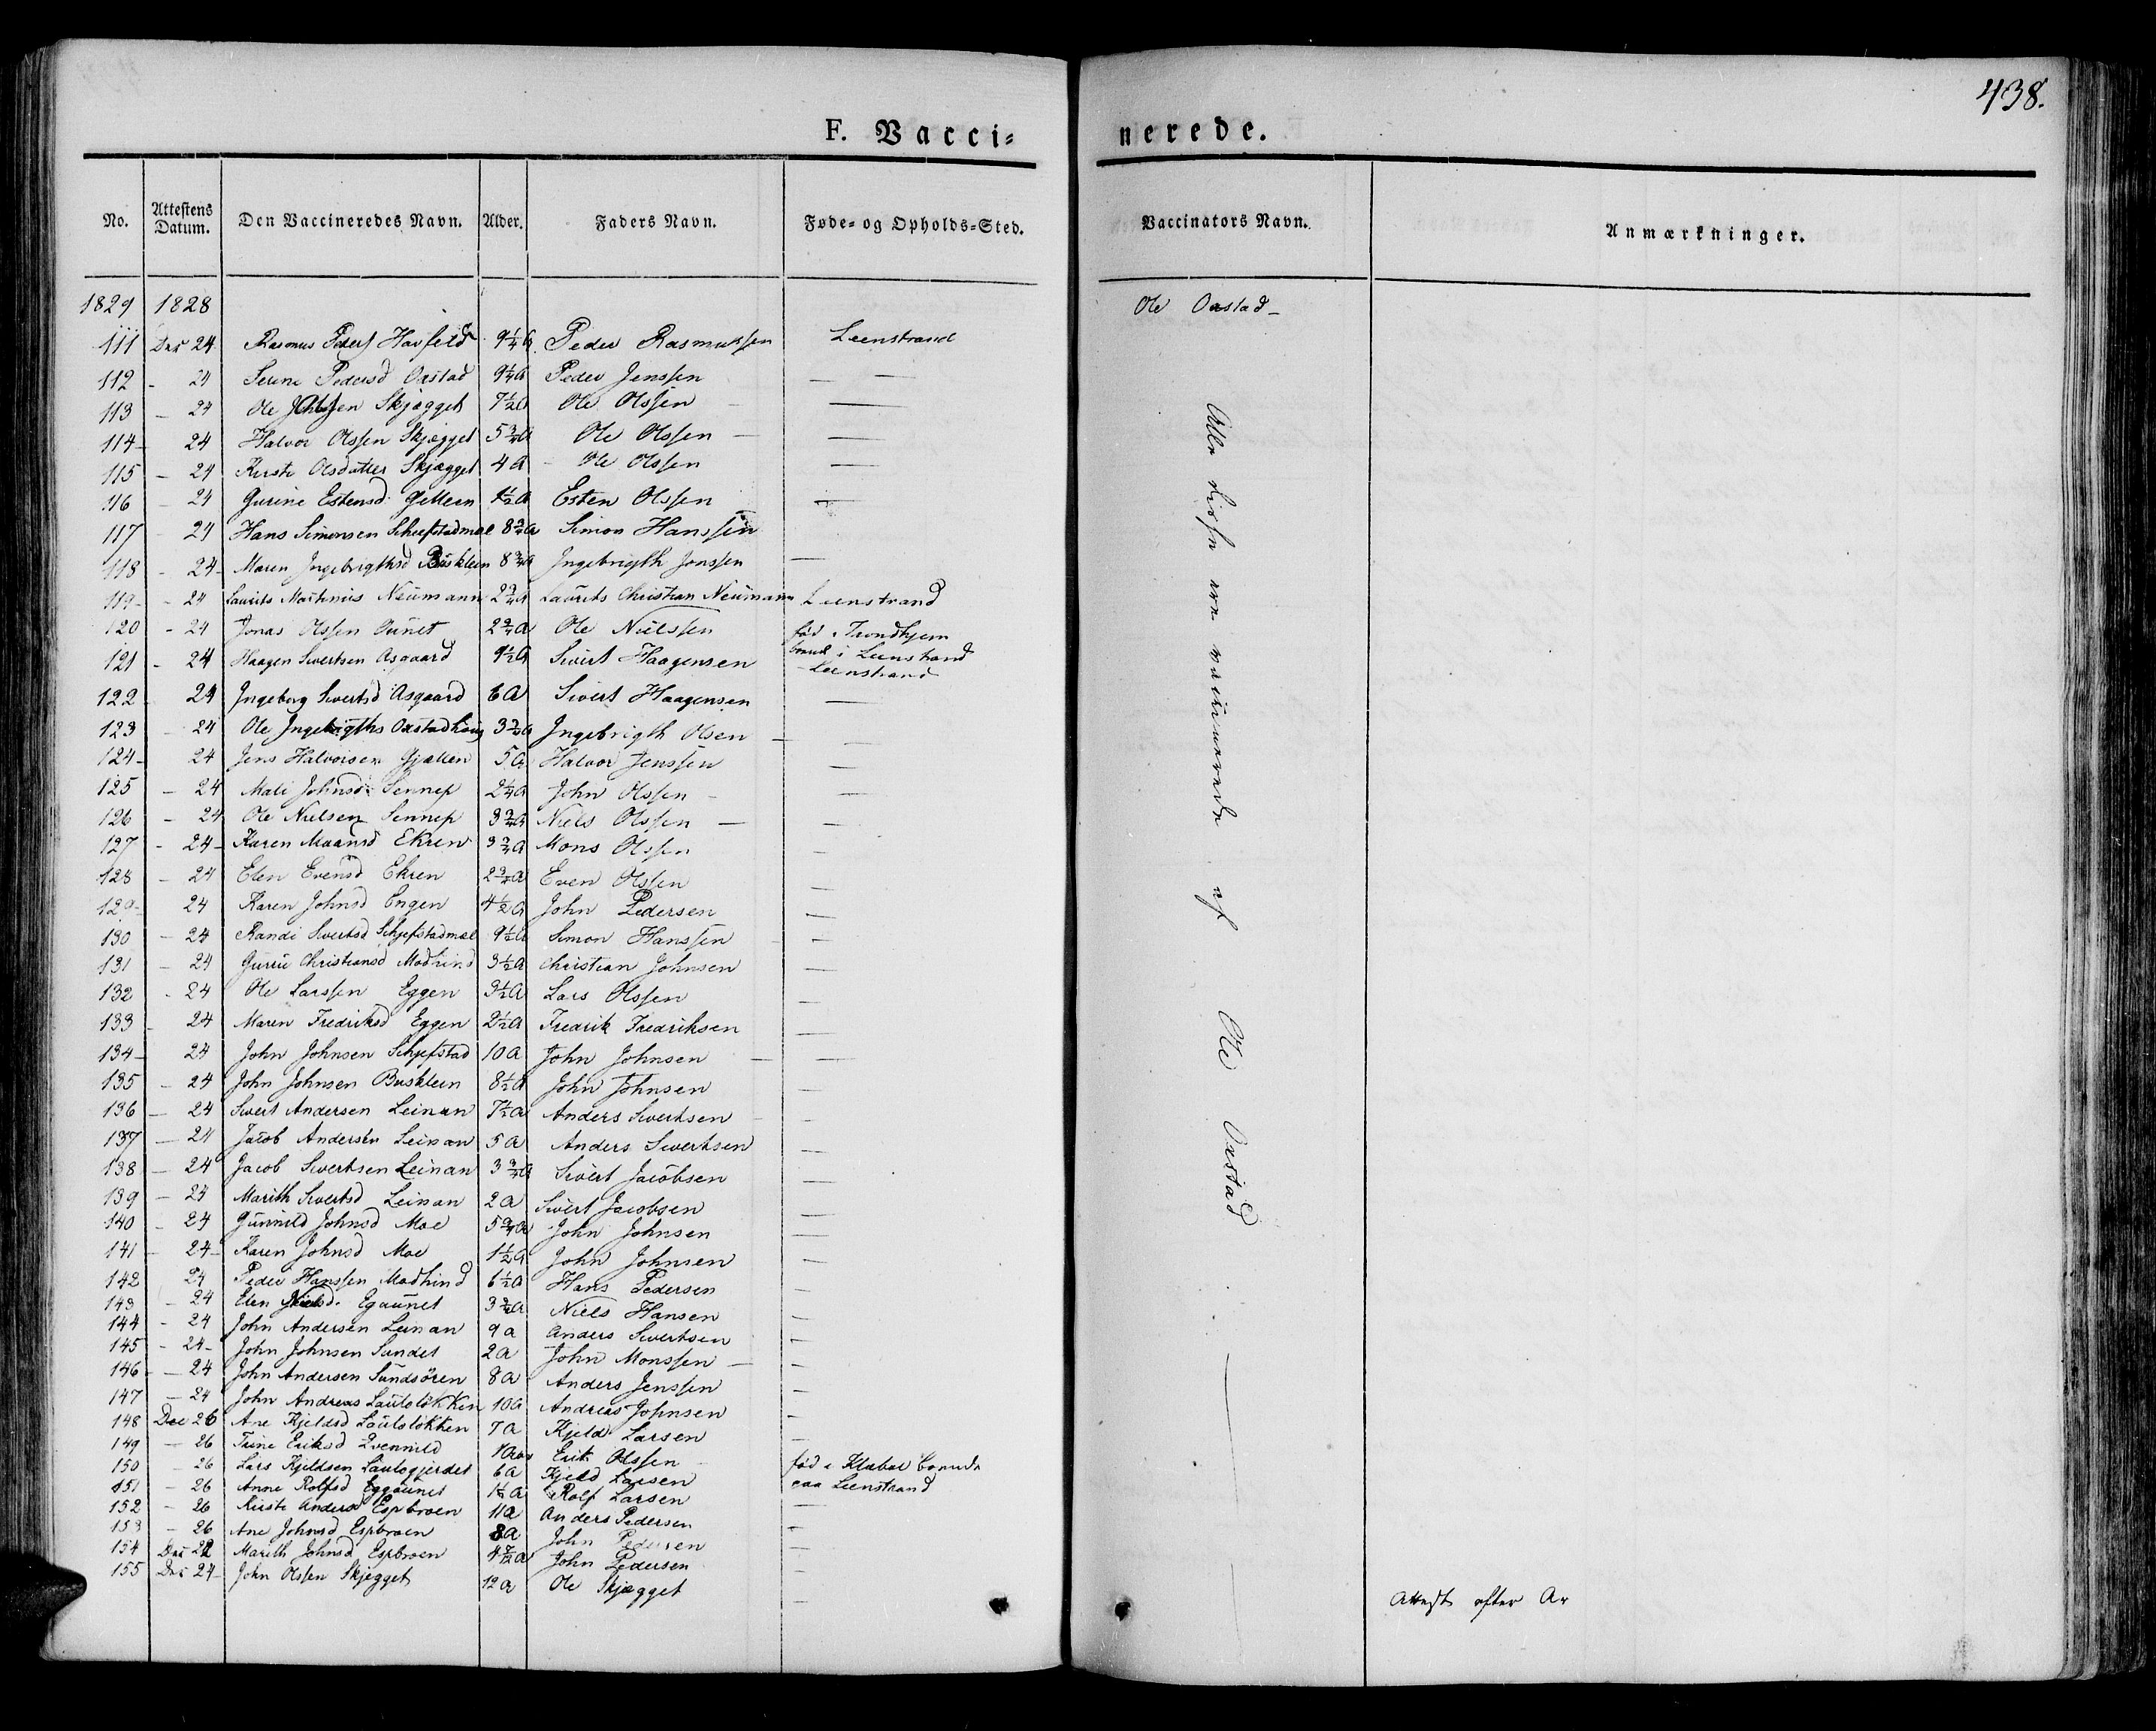 438.
F. Vacci=
nerede.
No. Attestens Datum. Den Vaccineredes Navn. Alder. Faders Navn. Føde= og Opholds=Sted. Vaccinators Navn. Anmærkninger.
1829 1828 Ole Oxstad
111 Dec 24 Rasmus 9¼ a Peder Rasmussen Leenstrand
112 - 24 Serine Pedersd Oxstad 9¼ a Peder Jenssen — —
113 - 24 Ole Skjægget 7½ a Ole Olssen —
114 - 24 Halvor Olssen Skjægget 5¾ a Ole Olssen —
115 - 24 Kirste Olsdatter Skjægget 4 a Ole Olssen —
116 - 24 Gurine Estensd. 1½ a Esten Olssen —
117 - 24 Hans Simonsen 8¾ a Simon Hanssen
118 - 24 Maren Ingebrigthsd Buskleen 8¾ a Ingebrigth Jonssen —
119 - 24 Laurits Martinus Neumann 2¾ a Laurits Christian Neumann Leenstrand
120 - 24 Jonas Olssen 2¾ a Ole Nielssen fød i Trondhjem
121 - 24 Haagen Sivertsen Asgaard 9½ a Sivert Haagensen i Leenstrand
- Leenstrand
122 - 24 Ingeborg Sivertsd Asgaard 6 a Sivert Haagensen —
123 - 24 Ole Ingebrigths Oxstadhaug 3¾ a Ingebrigth Olsen —
124 - 24 Jens Halvorsen 5 a Halvor Jenssen —
125 - 24 Mali Johnsd. Sennep 2¼ a John Olssen —
126 - 24 Ole Nielsen Sennep 3¾ a Niels Olssen —
127 - 24 Karen Maansd Ekren 3¾ a Mons Olssen —
128 - 24 Elen Evensd Ekren 2¾ a Even Olssen —
129 - 24 Karen Johnsd Engen 4½ a John Pedersen —
130 - 24 Randi Sivertsd Schjefstadmæl 9½ a Simon Hanssen —
131 - 24 Gurru Christiansd 3½ a Christian Johnsen —
132 - 24 Ole Larssen Eggen 3½ a Lars Olssen —
133 - 24 Maren Fredriksd Eggen 2½ a Fredrik Fredriksen —
134 - 24 John Johnsen Schjefstad 10 a John Johnsen —
135 - 24 John Johnsen Buskleen 8½ a John Johnsen —
136 - 24 Sivert Andersen Leinan 7½ a Anders Sivertsen —
137 - 24 Jacob Andersen Leinan 5 a Anders Sivertsen —
138 - 24 Jacob Sivertsen Leinan 3¾ a Sivert Jacobsen —
139 - 24 Marith Sivertsd Leinan 2 a Sivert Jacobsen —
140 - 24 Gunnild Johnsd Moe 5¾ a John Johnsen —
141 - 24 Karen Johnsd Moe 1½ a John Johnsen —
142 24 Peder Hanssen 6½ a Hans Pedersen —
143 - 24 Elen Nielsd. Egaunet 3¾ a Niels Hansen —
144 - 24 John Andersen Leinan 9 a Anders Sivertsen —
145 - 24 John Johnsen Sundet 2 a John Monssen —
146 - 24 John Andersen Sundsören 8 a Anders Jenssen —
147 - 24 John Andreas 10 a Andreas Johnsen —
148 Dec 26 Ane Kjeldsd 7 a Kjeld Larsen —
149 - 26 Trine Eriksd Erik Olssen fød i Klæbue
150 - 26 Lars Kjeldsen 6 a Kjeld Larsen Leenstrand
151 - 26 Anne Rolfsd Eggaunet 1½ a Rolf Larsen —
152 - 26 Kirste Andersd Espbroen 11 a Anders Pedersen —
153 - 26 Ane Johnsd Espbroen 8 a John Pedersen —
154 Marith Johnsd Espbroen John Pedersen —
155 Dec 24 John Olssen Skjægget 12 a Ole Skjægget —
Alle disse ere vaccinerede af Ole Oxstad
efter